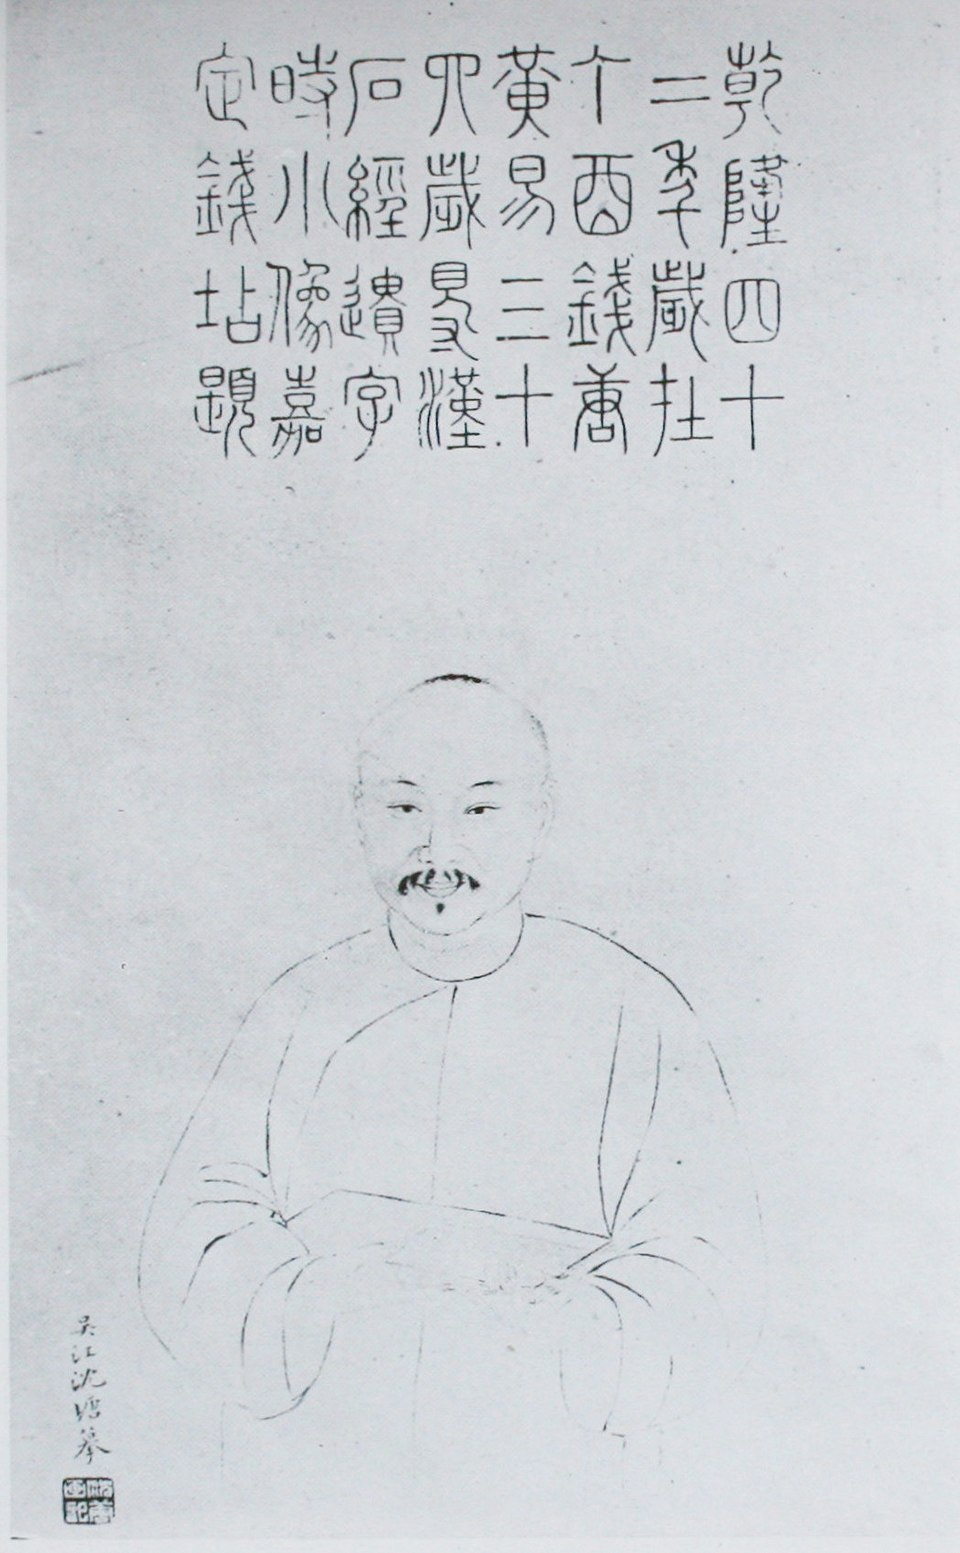 乾隆四十
二年歲在
丁酉錢唐
黃易三十
四歲得漢
石經遺字
時小像嘉
定錢坫題
吳江沈塘摹